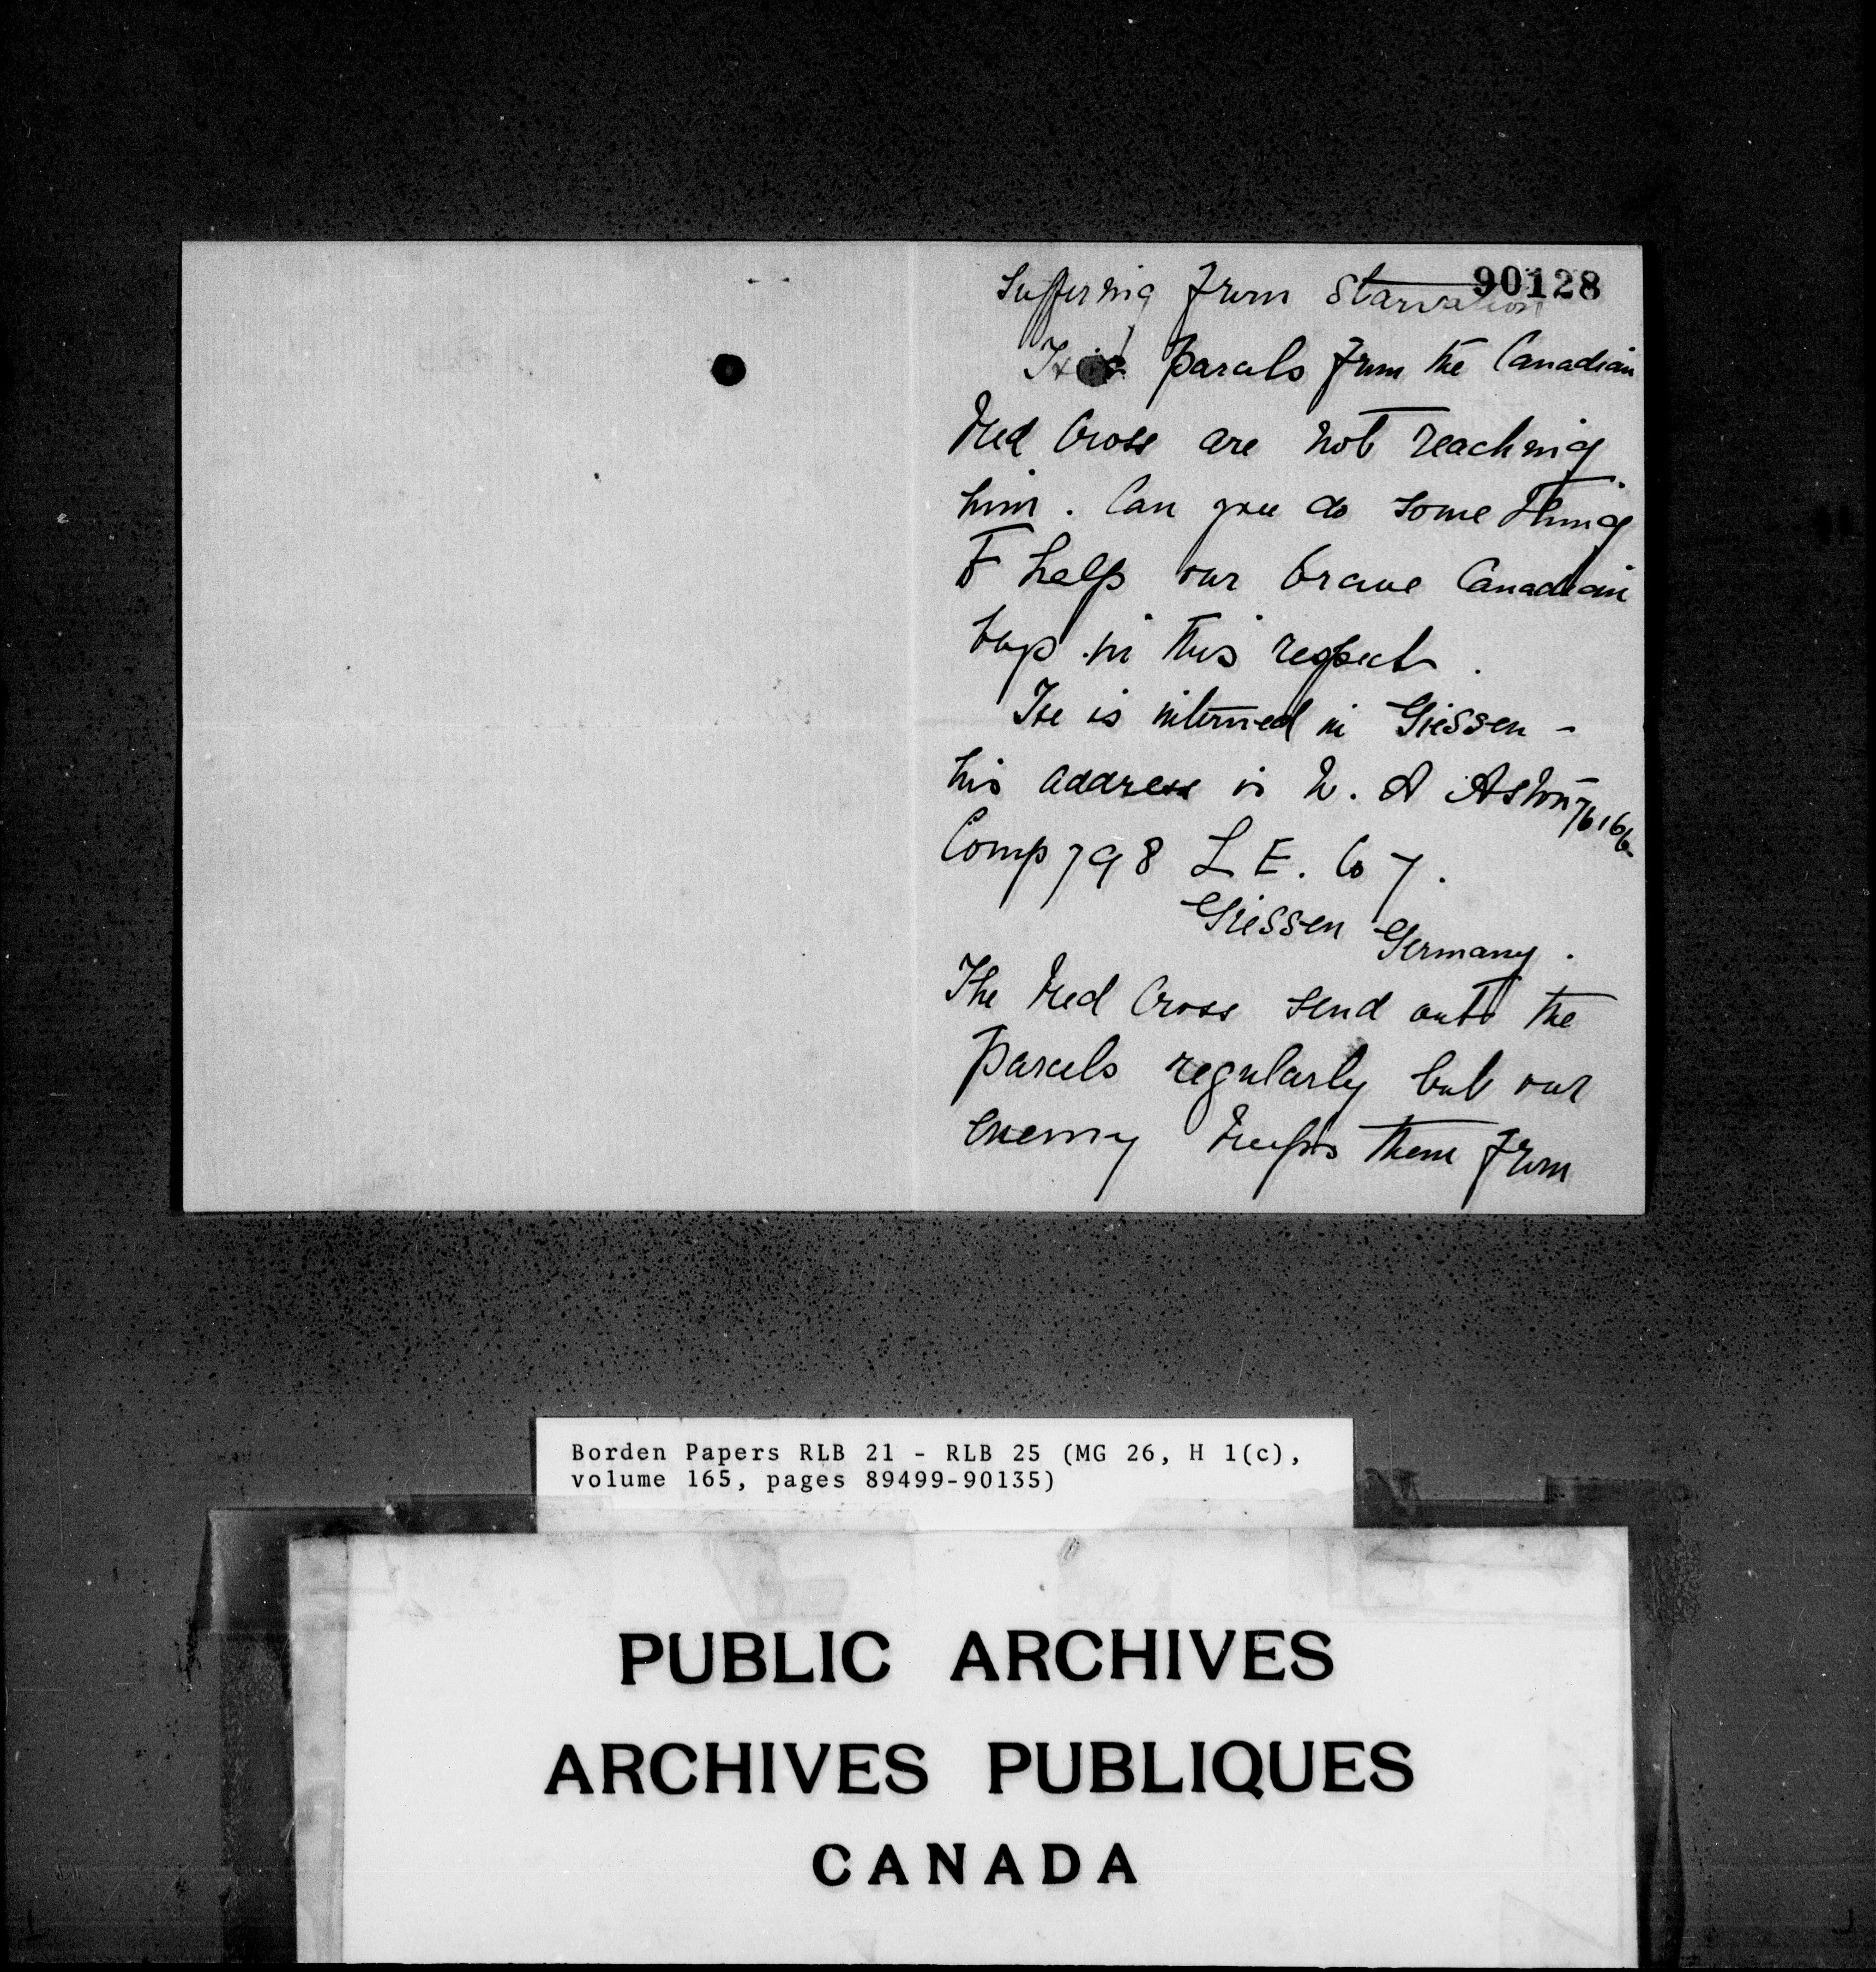 90128
Suffering from Starvation
His parcels from the Canadian
Red Cross are not reaching
him. Can you do some thing
to help our brave Canadian
boys in this respect.
He is interned in Giessen -
his address is W. A Aston 76166
Comp 798 L E. Co 7.
Giessen Germany.
The Red Cross send out the
parcels regularly but our
enemy keeps them from
Borden Papers RLB 21 - RLB 25 (MG 26, H 1(c),
volume 165, pages 89499-90135)
PUBLIC ARCHIVES
ARCHIVES PUBLIQUES
CANADA